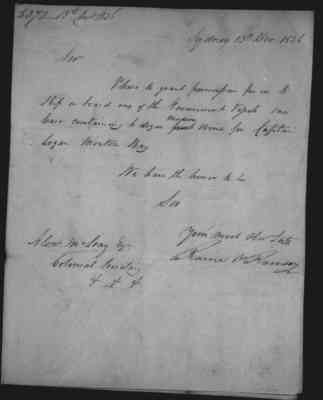 Sydney 13th Dec 1826
Sir
Please to grant permission for us to
Ship on board one of the Government Vessels one
Case containing 6 dozen wine for Captain
Logan Moreton Bay
We have the honor to be
Sir
Your most Obt Servts
Raine & Ramsay
Alexr McLeay Esqr
Colonial Secretary
&c &c &c